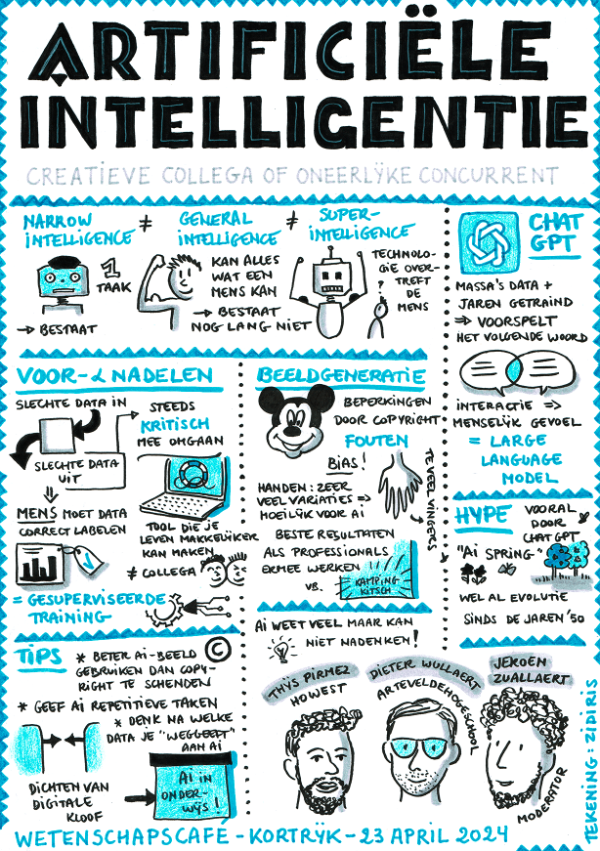 ARTIFICIËLE
INTELLIGENTIE
CREATIEVE COLLEGA OF ONEERLIJKE CONCURRENT
NARROW
INTELLIGENCE
≠
GENERAL
INTELLIGENCE
≠
SUPER-
INTELLIGENCE
1
TAAK
→ BESTAAT
KAN ALLES
WAT EEN
MENS KAN
→ BESTAAT
NOG LANG NIET
TECHNOLO-
GIE OVER-
TREFT
DE
MENS
?
CHAT
GPT
MASSA'S DATA +
JAREN GETRAIND
⇒ VOORSPELT
HET VOLGENDE WOORD
INTERACTIE ⇒
MENSELIJK GEVOEL
= LARGE
LANGUAGE
MODEL
VOOR- & NADELEN
SLECHTE DATA IN
SLECHTE DATA
UIT
MENS MOET DATA
CORRECT LABELEN
= GESUPERVISEERDE
TRAINING
STEEDS
KRITISCH
MEE OMGAAN
TOOL DIE JE
LEVEN MAKKELIJKER
KAN MAKEN
≠ COLLEGA
BEELDGENERATIE
BEPERKINGEN
DOOR COPYRIGHT
FOUTEN
BIAS!
HANDEN: ZEER
VEEL VARIATIES ⇒
MOEILIJK VOOR AI
TE VEEL VINGERS
BESTE RESULTATEN
ALS PROFESSIONALS
ERMEE WERKEN
VS.
KAMPING
KITSCH
AI WEET VEEL MAAR KAN
NIET NADENKEN!
HYPE
VOORAL
DOOR
CHAT GPT
"AI SPRING"
WEL AL EVOLUTIE
SINDS DE JAREN '50
TIPS
* BETER AI-BEELD
GEBRUIKEN DAN COPY-
RIGHT TE SCHENDEN
©
* GEEF AI REPETITIEVE TAKEN
* DENK NA WELKE
DATA JE "WEGGEEFT"
AAN AI
DICHTEN VAN
DIGITALE
KLOOF
AI IN
ONDER-
WIJS!
THIJS PIRMEZ
HOWEST
DIETER WULLAERT
ARTEVELDEHOGESCHOOL
JEROEN
ZUALLAERT
MODERATOR
TEKENING: ZIDIRIS
WETENSCHAPSCAFÉ - KORTRIJK - 23 APRIL 2024